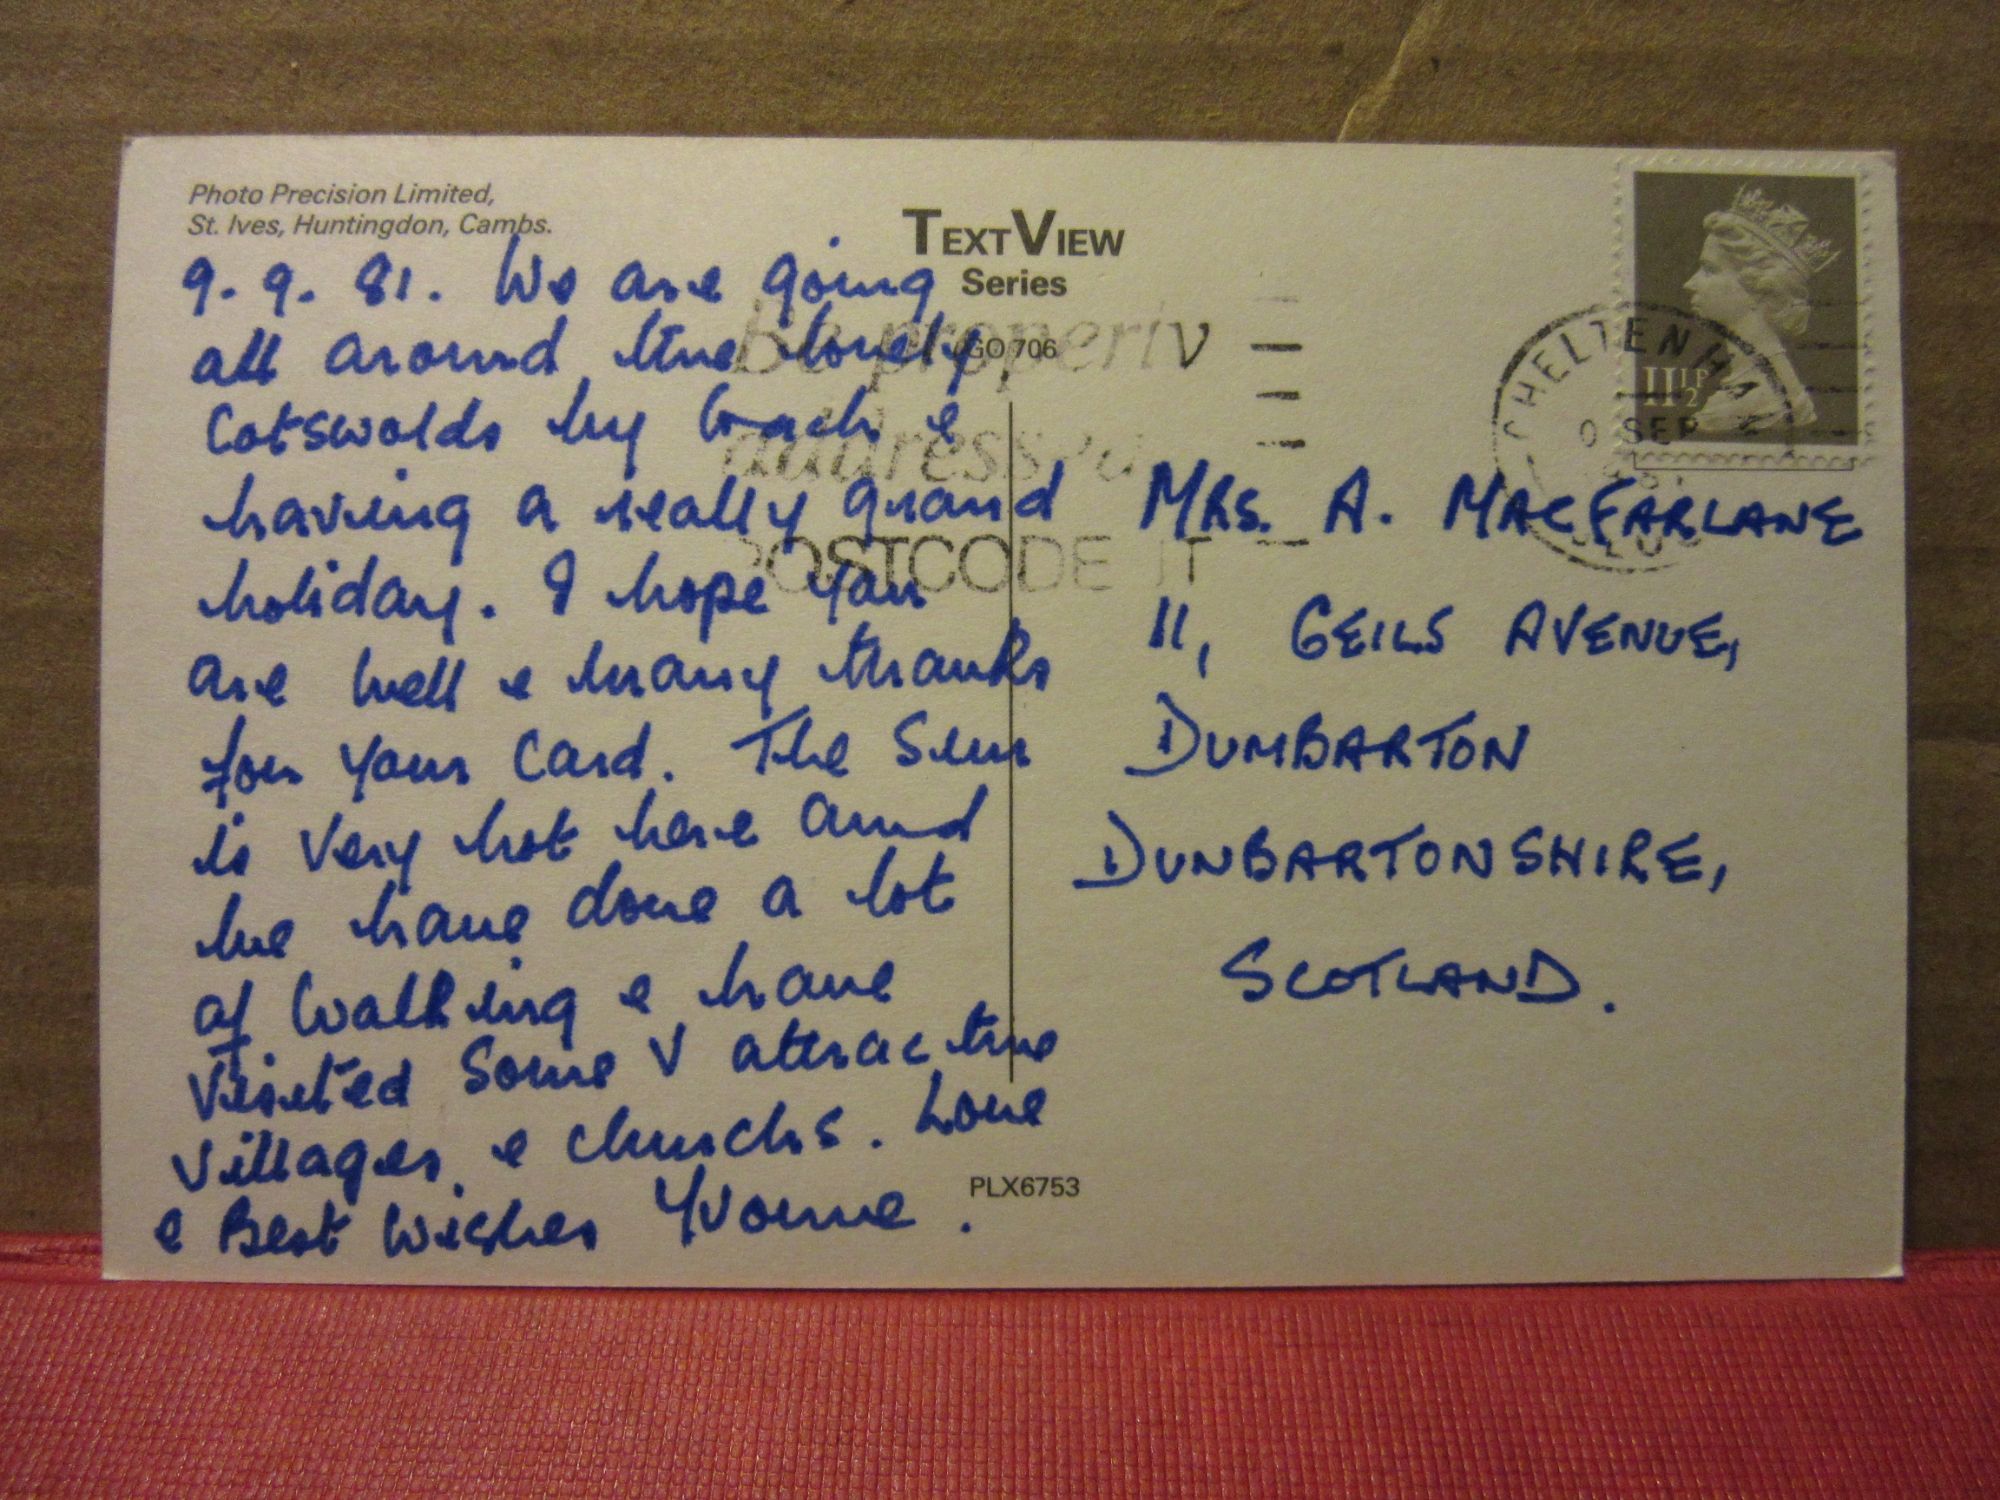 Photo Precision Limited,
St. Ives, Huntingdon, Cambs.
TEXTVIEW
Series
GO 706
9. 9. 81. We are going
all around the lovely
Cotswolds by Coach &
having a really grand
holiday. I hope you
are well & many thanks
for your card. The Sun
is very hot here and
we have done a lot
of walking & have
visited some v attractive
villages & churchs. Love
& Best Wishes Yvonne.
PLX6753
Be properly
address
POSTCODE IT
11½P
CHELTENHAM
SEP
MRS. A. MACFARLANE
11, GEILS AVENUE,
DUMBARTON
DUNBARTONSHIRE,
SCOTLAND.